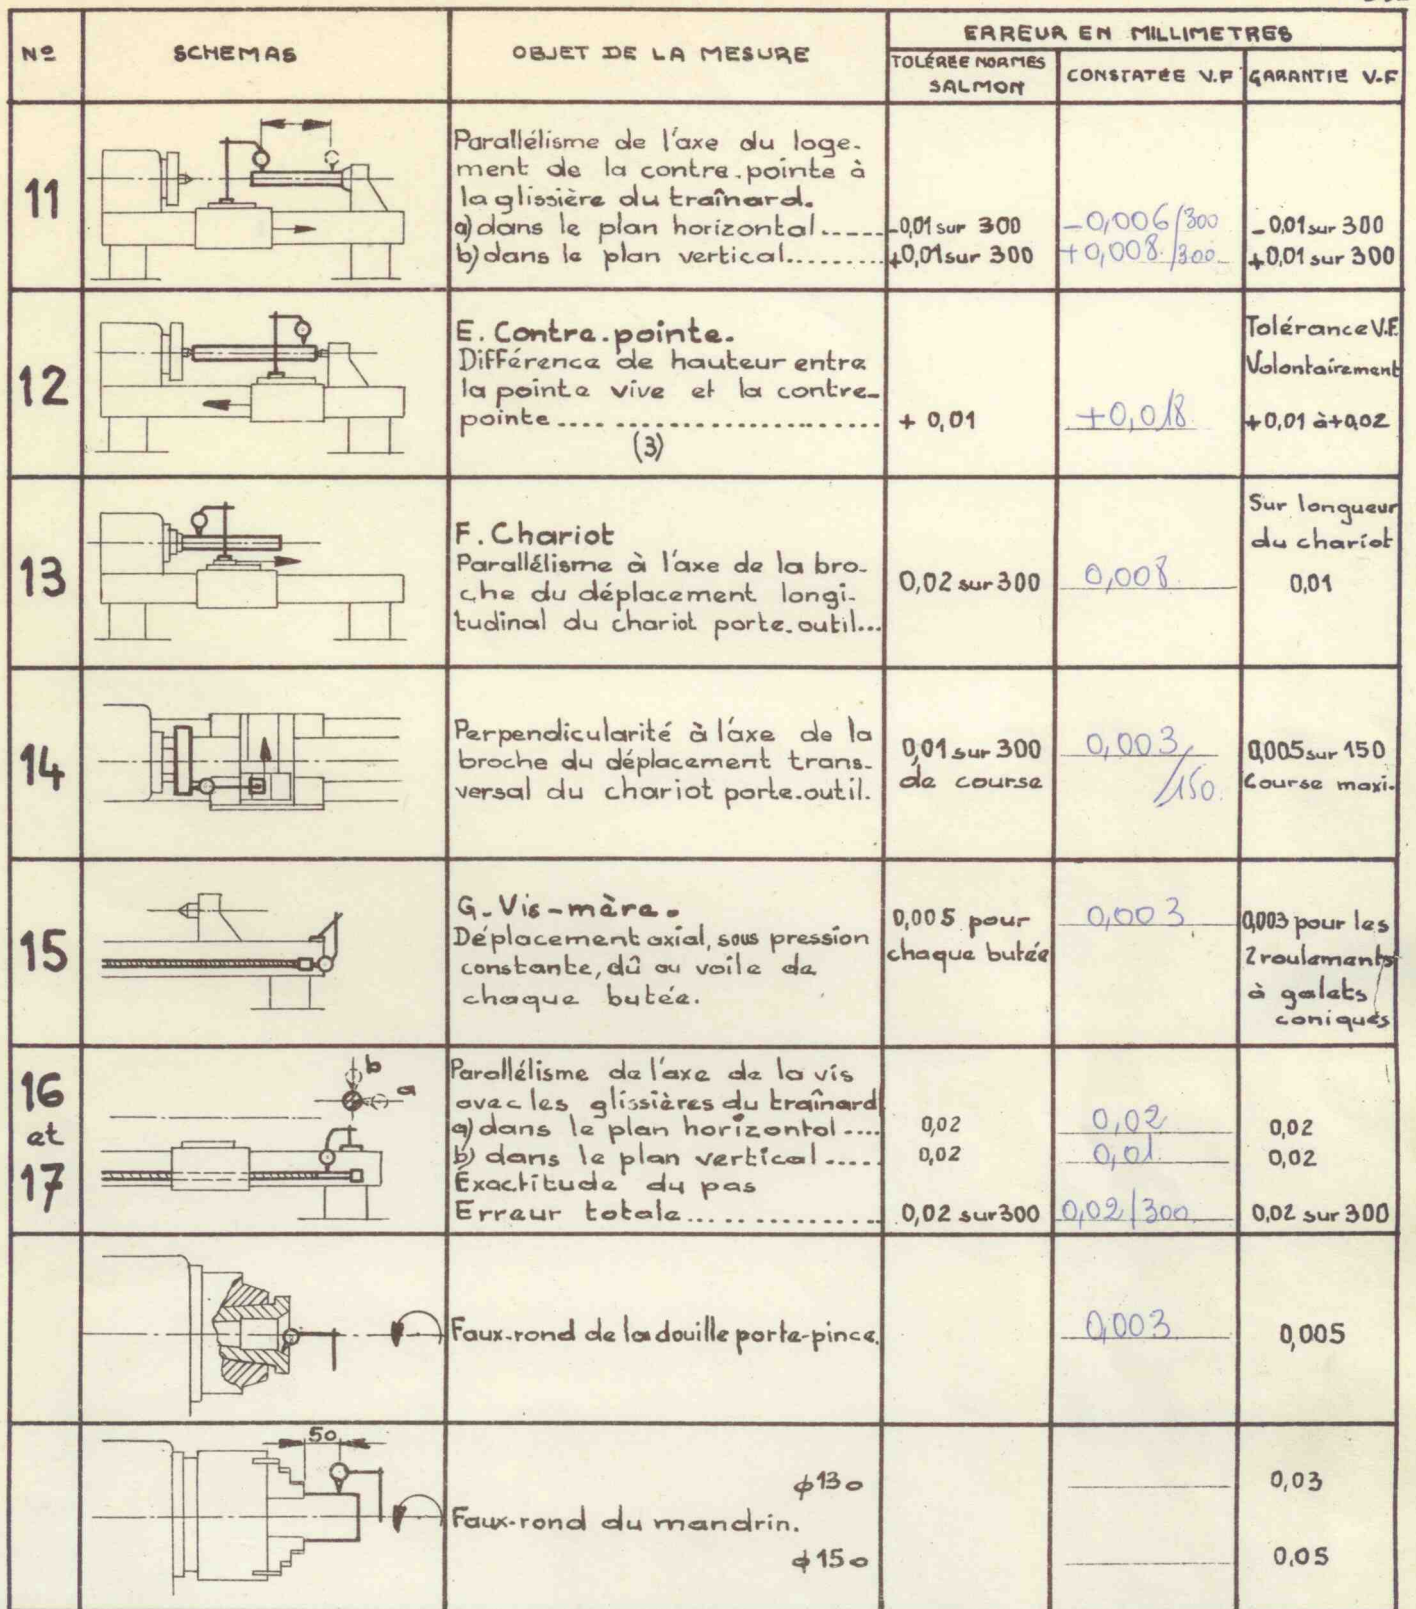 ERREUR EN MILLIMETRES
Nº SCHEMAS OBJET DE LA MESURE
TOLÉRÉE NORMES
SALMON
CONSTATÉE V.F
GARANTIE V-F
11
Parallélisme de l'axe du loge-
ment de la contre.pointe à
la glissière du traînard.
a) dans le plan horizontal..... -0,01 sur 300 -0,006/300 -0,01 sur 300
b) dans le plan vertical......... +0,01 sur 300 +0,008./300 +0,01 sur 300
12
E. Contre.pointe.
Différence de hauteur entre
la pointe vive et la contre-
pointe ........................ + 0,01 +0,018
(3)
Tolérance V.F.
Volontairement
+0,01 à +0,02
13
F. Chariot
Parallélisme à l'axe de la bro-
che du déplacement longi-
tudinal du chariot porte.outil...
0,02 sur 300
0,008
Sur longueur
du chariot
0,01
14
Perpendicularité à l'axe de la
broche du déplacement trans-
versal du chariot porte.outil.
0,01 sur 300
de course
0,003
/150.
0,005 sur 150
Course maxi.
15
G. Vis-mère.
Déplacement axial, sous pression
constante, dû au voile de
chaque butée.
0,005 pour
chaque butée
0,003
0,003 pour les
2 roulements
à galets
coniques
16
et
17
b
a
Parallélisme de l'axe de la vis
avec les glissières du traînard
a) dans le plan horizontal .... 0,02 0,02 0,02
b) dans le plan vertical ..... 0,02 0,01 0,02
Exactitude du pas
Erreur totale............... 0,02 sur 300 0,02/300 0,02 sur 300
Faux-rond de la douille porte-pince. 0,003 0,005
50
ϕ130 0,03
Faux-rond du mandrin.
ϕ150 0,05